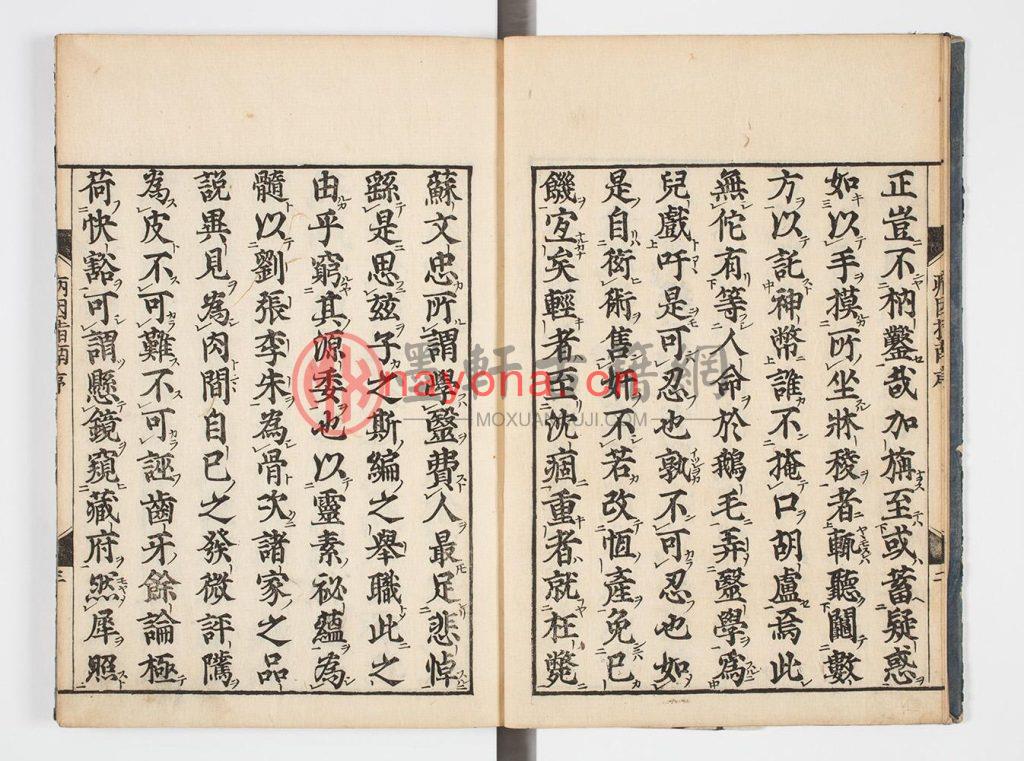 正豈不枘鑿哉加旃至或蓄疑惑
如以手摸所坐牀稜者輙聽闘蟻
方以託神幣誰不掩口胡盧焉此
無佗有等人命於鵝毛弄毉學為
兒戲吁是可忍也孰不可忍也如
是自衒術售妍不若改恆產免已
饑寔矣輕者至沈痼重者就枉斃
病因指南序 二
蘇文忠所謂學毉費人最足悲悼
繇是思玆子之斯編之舉職此之
由乎窮其源委也以靈素祕蘊為
髓以劉張李朱為骨次諸家之品
説異見為肉間自已之發微評隲
為皮不可難不可誣齒牙餘論極
荷快豁可謂懸鏡窺藏府然犀照
病因指南序 三
墨軒古籍網
nayona.cn
MOXUANGUJI.COM